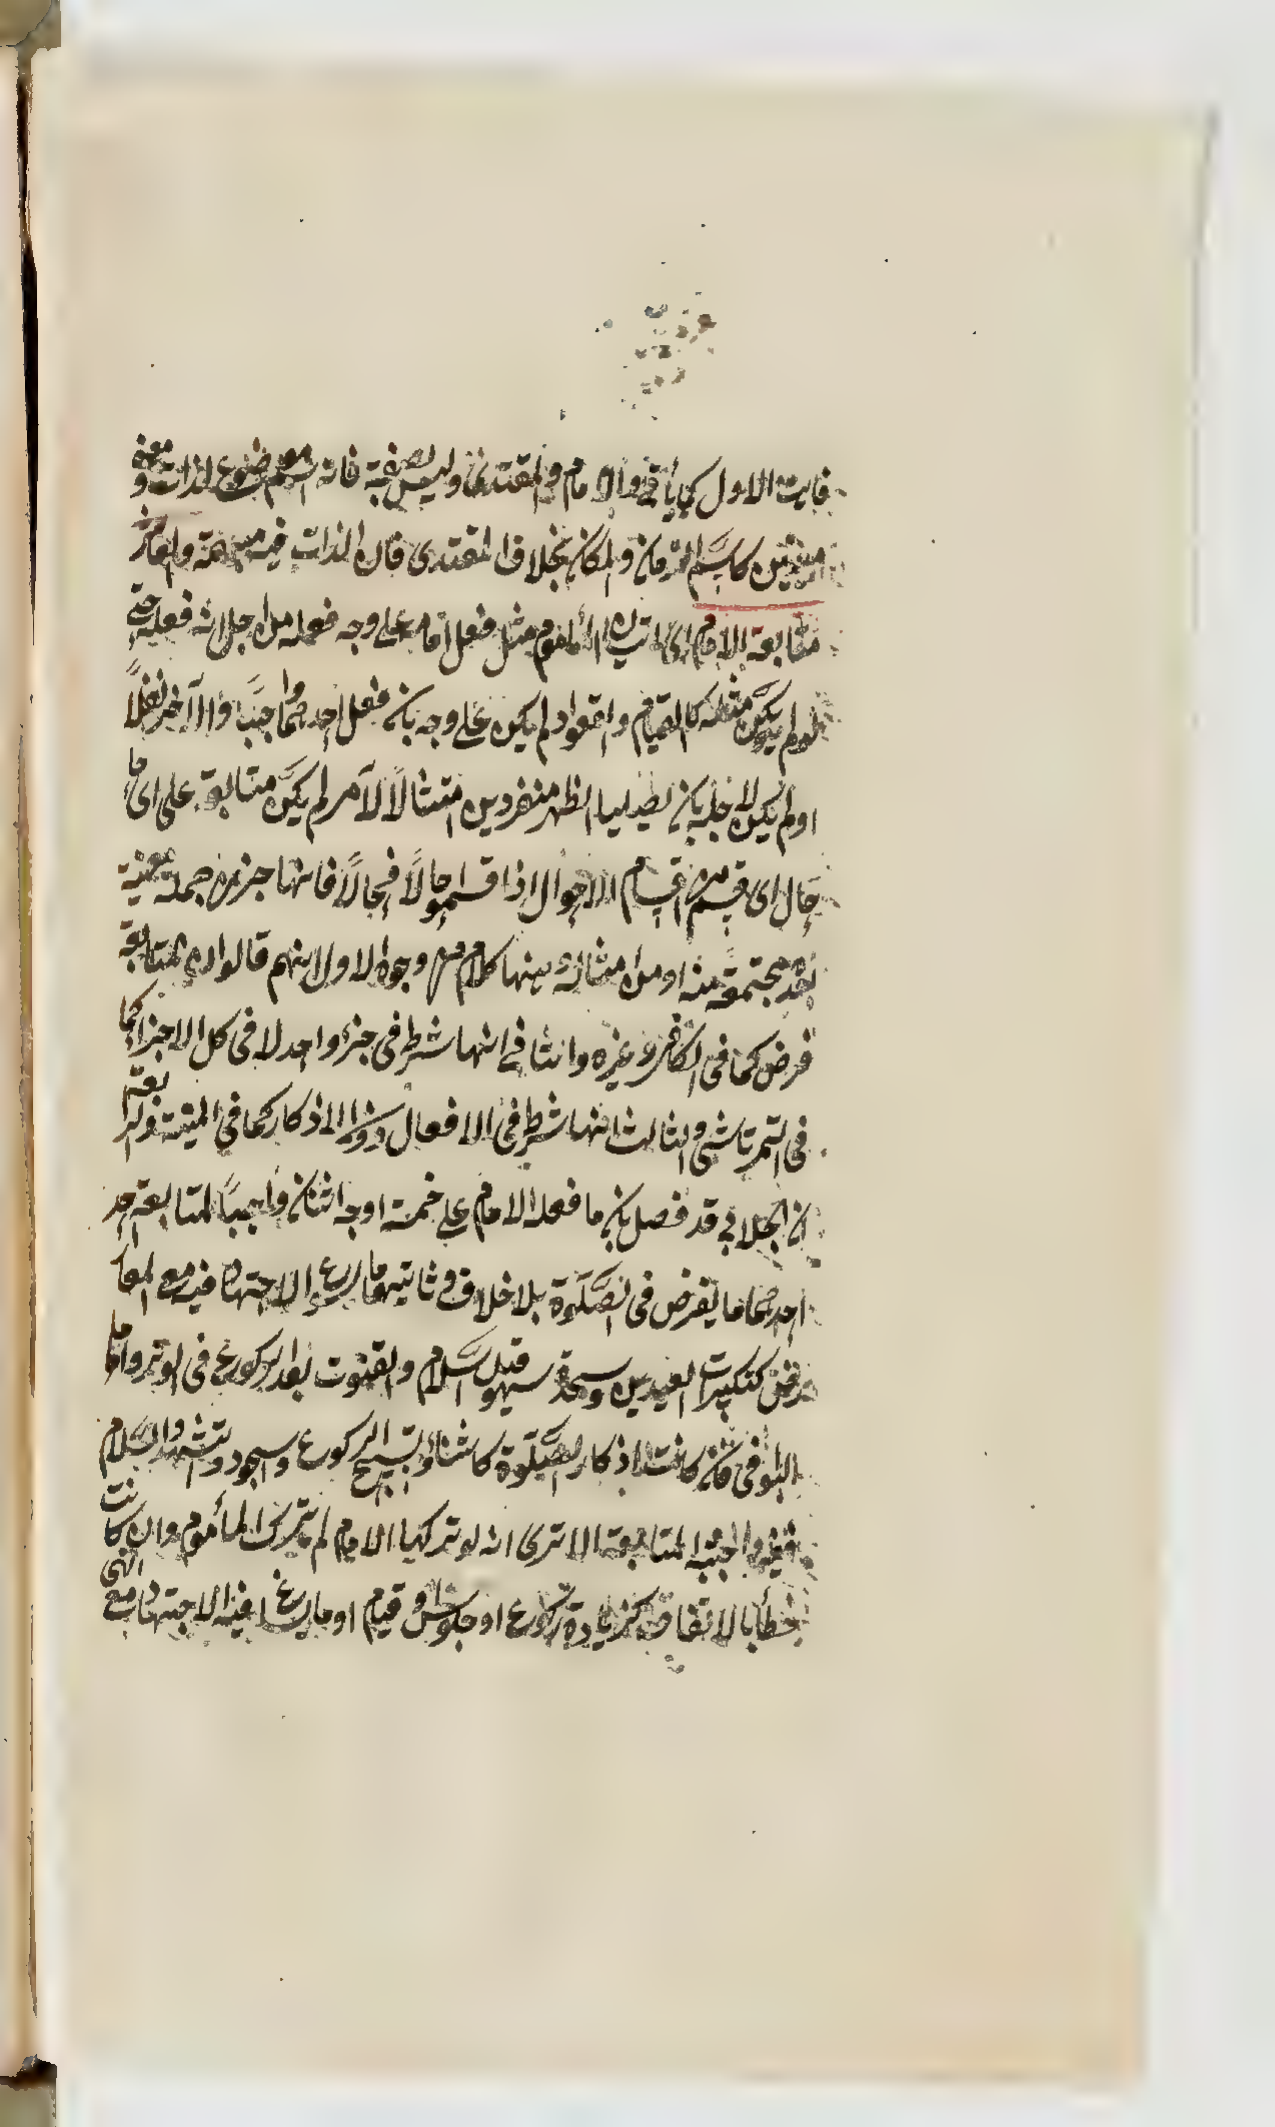 فايت الاول كما يأتي والامام والمقتدى وليس بصفة فانه اسم موضوع لذات ومعنى
معينين كاسم الزمان والمكان بخلاف المقتدى فان الذات فيه مبهمة
متابعة الامام اى اتيان المأموم مثل فعل امامه على وجه فعله من اجل انه فعله حتى
لو لم يكن مثله كالقيام والقعود لم يكن على وجه بان فعل احدهما واجبا والآخر نفلاً
او لم يكن لاجله بان يصليا الظهر منفردين امتثالاً لامر لم يكن متابعة على اى ما
حال اى قسم من اقسام الاحوال اذا قسم حالاً فحالاً فانها جزء من جملة معينة
بعده مجتمعة منه او من امثاله كلام من وجوه الاول انهم قالوا ان المتابعة
فرض كما فى الكافى وغيره والثانى انها شرط فى جزء واحد لا فى كل الاجزاء كما
فى التمرتاشى والثالث انها شرط فى الافعال دون الاذكار كما في المنية والرابعة
ان الجلابى قد فصل بان ما فعله الامام على خمسة اوجه اثنان واجبا المتابعة احد
احدهما ما يفرض فى الصلوة بلا خلاف وثانيهما ما يسوغ الاجتهاد فيه مع
كتكبيرات العيدين وسجدة سهو قبل السلام والقنوت بعد الركوع فى الوتر واما
البواقى فان كانت اذكار الصلوة كالثناء وتسبيح الركوع وسجود وتشهد والسلام
فغير واجبة المتابعة الا ترى انه لو تركها الامام لم يترك المأموم وان كانت
خطأ بالاتفاق كزيادة ركوع او جلوس وقيام او ما يسوغ فيه الاجتهاد مع